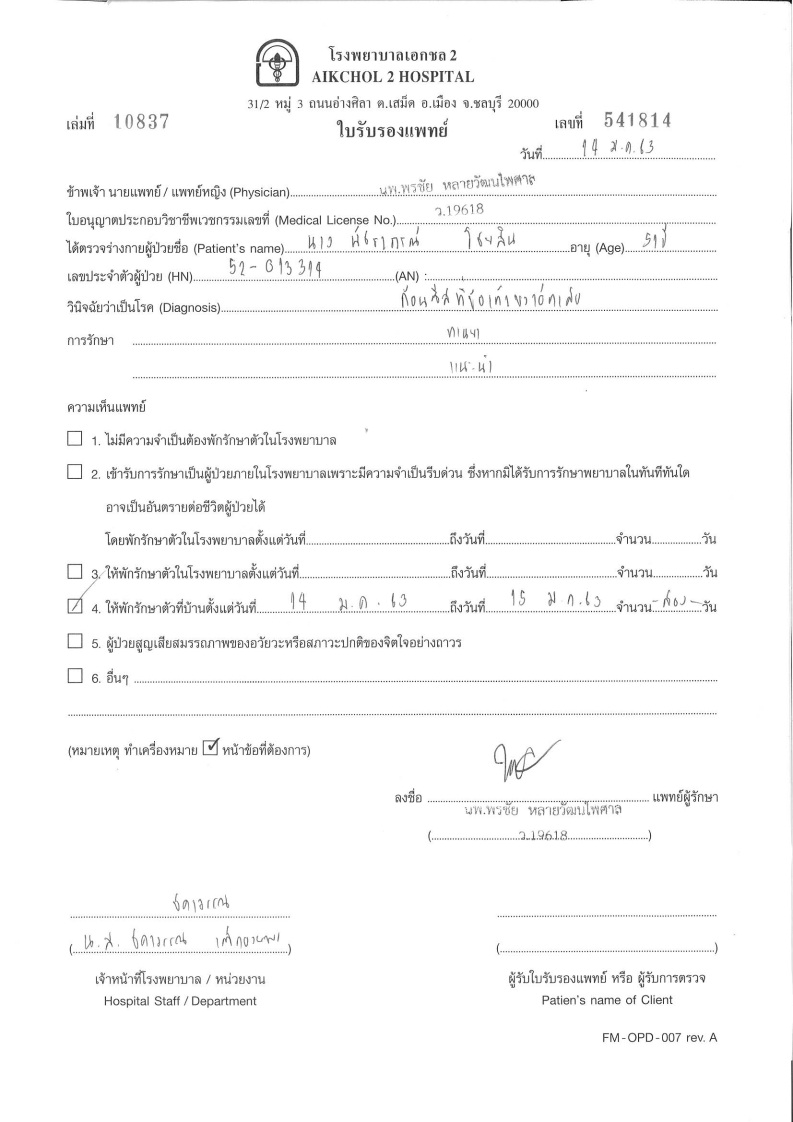 โรงพยาบาลเอกชล 2
AIKCHOL 2 HOSPITAL
31/2 หมู่ 3 ถนนอ่างศิลา ต.เสม็ด อ.เมือง จ.ชลบุรี 20000
เล่มที่ 10837 เลขที่ 541814
ใบรับรองแพทย์
วันที่ 14 ม.ค. 63
ข้าพเจ้า นายแพทย์ / แพทย์หญิง (Physician) นพ.พรชัย หลายวัฒนไพศาล
ใบอนุญาตประกอบวิชาชีพเวชกรรมเลขที่ (Medical License No.) ว.19618
ได้ตรวจร่างกายผู้ป่วยชื่อ (Patient's name) นาง อายุ (Age) 51 ปี
เลขประจำตัวผู้ป่วย (HN) 52-013314 (AN) :
วินิจฉัยว่าเป็นโรค (Diagnosis)
การรักษา ทานยา
แนะนำ
ความเห็นแพทย์
1. ไม่มีความจำเป็นต้องพักรักษาตัวในโรงพยาบาล
2. เข้ารับการรักษาเป็นผู้ป่วยภายในโรงพยาบาลเพราะมีความจำเป็นรีบด่วน ซึ่งหากมิได้รับการรักษาพยาบาลในทันทีทันใด
อาจเป็นอันตรายต่อชีวิตผู้ป่วยได้
โดยพักรักษาตัวในโรงพยาบาลตั้งแต่วันที่ ถึงวันที่ จำนวน วัน
3. ให้พักรักษาตัวในโรงพยาบาลตั้งแต่วันที่ ถึงวันที่ จำนวน วัน
4. ให้พักรักษาตัวที่บ้านตั้งแต่วันที่ 14 ม.ค. 63 ถึงวันที่ 15 ม.ค. 63 จำนวน -สอง- วัน
5. ผู้ป่วยสูญเสียสมรรถภาพของอวัยวะหรือสภาวะปกติของจิตใจอย่างถาวร
6. อื่นๆ
(หมายเหตุ ทำเครื่องหมาย ☑ หน้าข้อที่ต้องการ)
ลงชื่อ แพทย์ผู้รักษา
นพ.พรชัย หลายวัฒนไพศาล
( ว.19618 )
ชดาวรรณ
(น.ส. ชดาวรรณ )
เจ้าหน้าที่โรงพยาบาล / หน่วยงาน
Hospital Staff / Department
( )
ผู้รับใบรับรองแพทย์ หรือ ผู้รับการตรวจ
Patien's name of Client
FM-OPD-007 rev. A